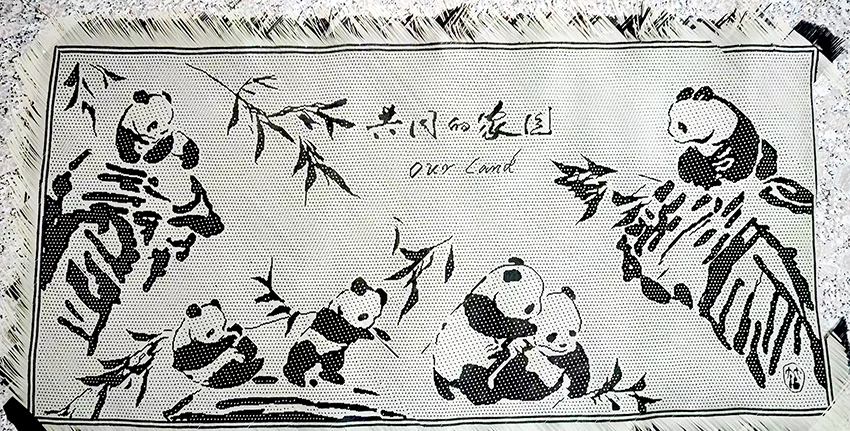 共同的家园
Our Land